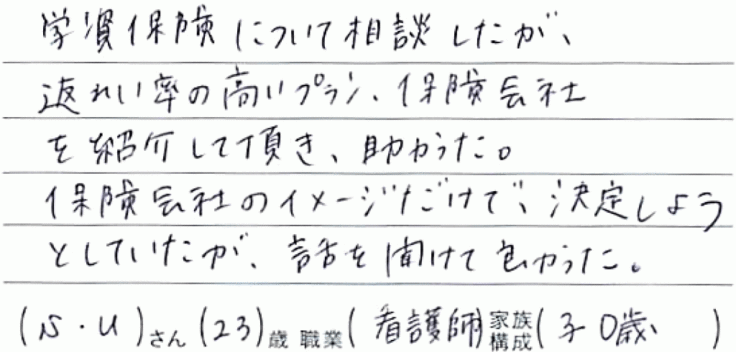 学資保険について相談したが、
返れい率の高いプラン、保険会社
を紹介して頂き、助かった。
保険会社のイメージだけで、決定しよう
としていたが、話を聞けて良かった。
(N・U)さん(23)歳 職業(看護師)家族構成(子0歳、)